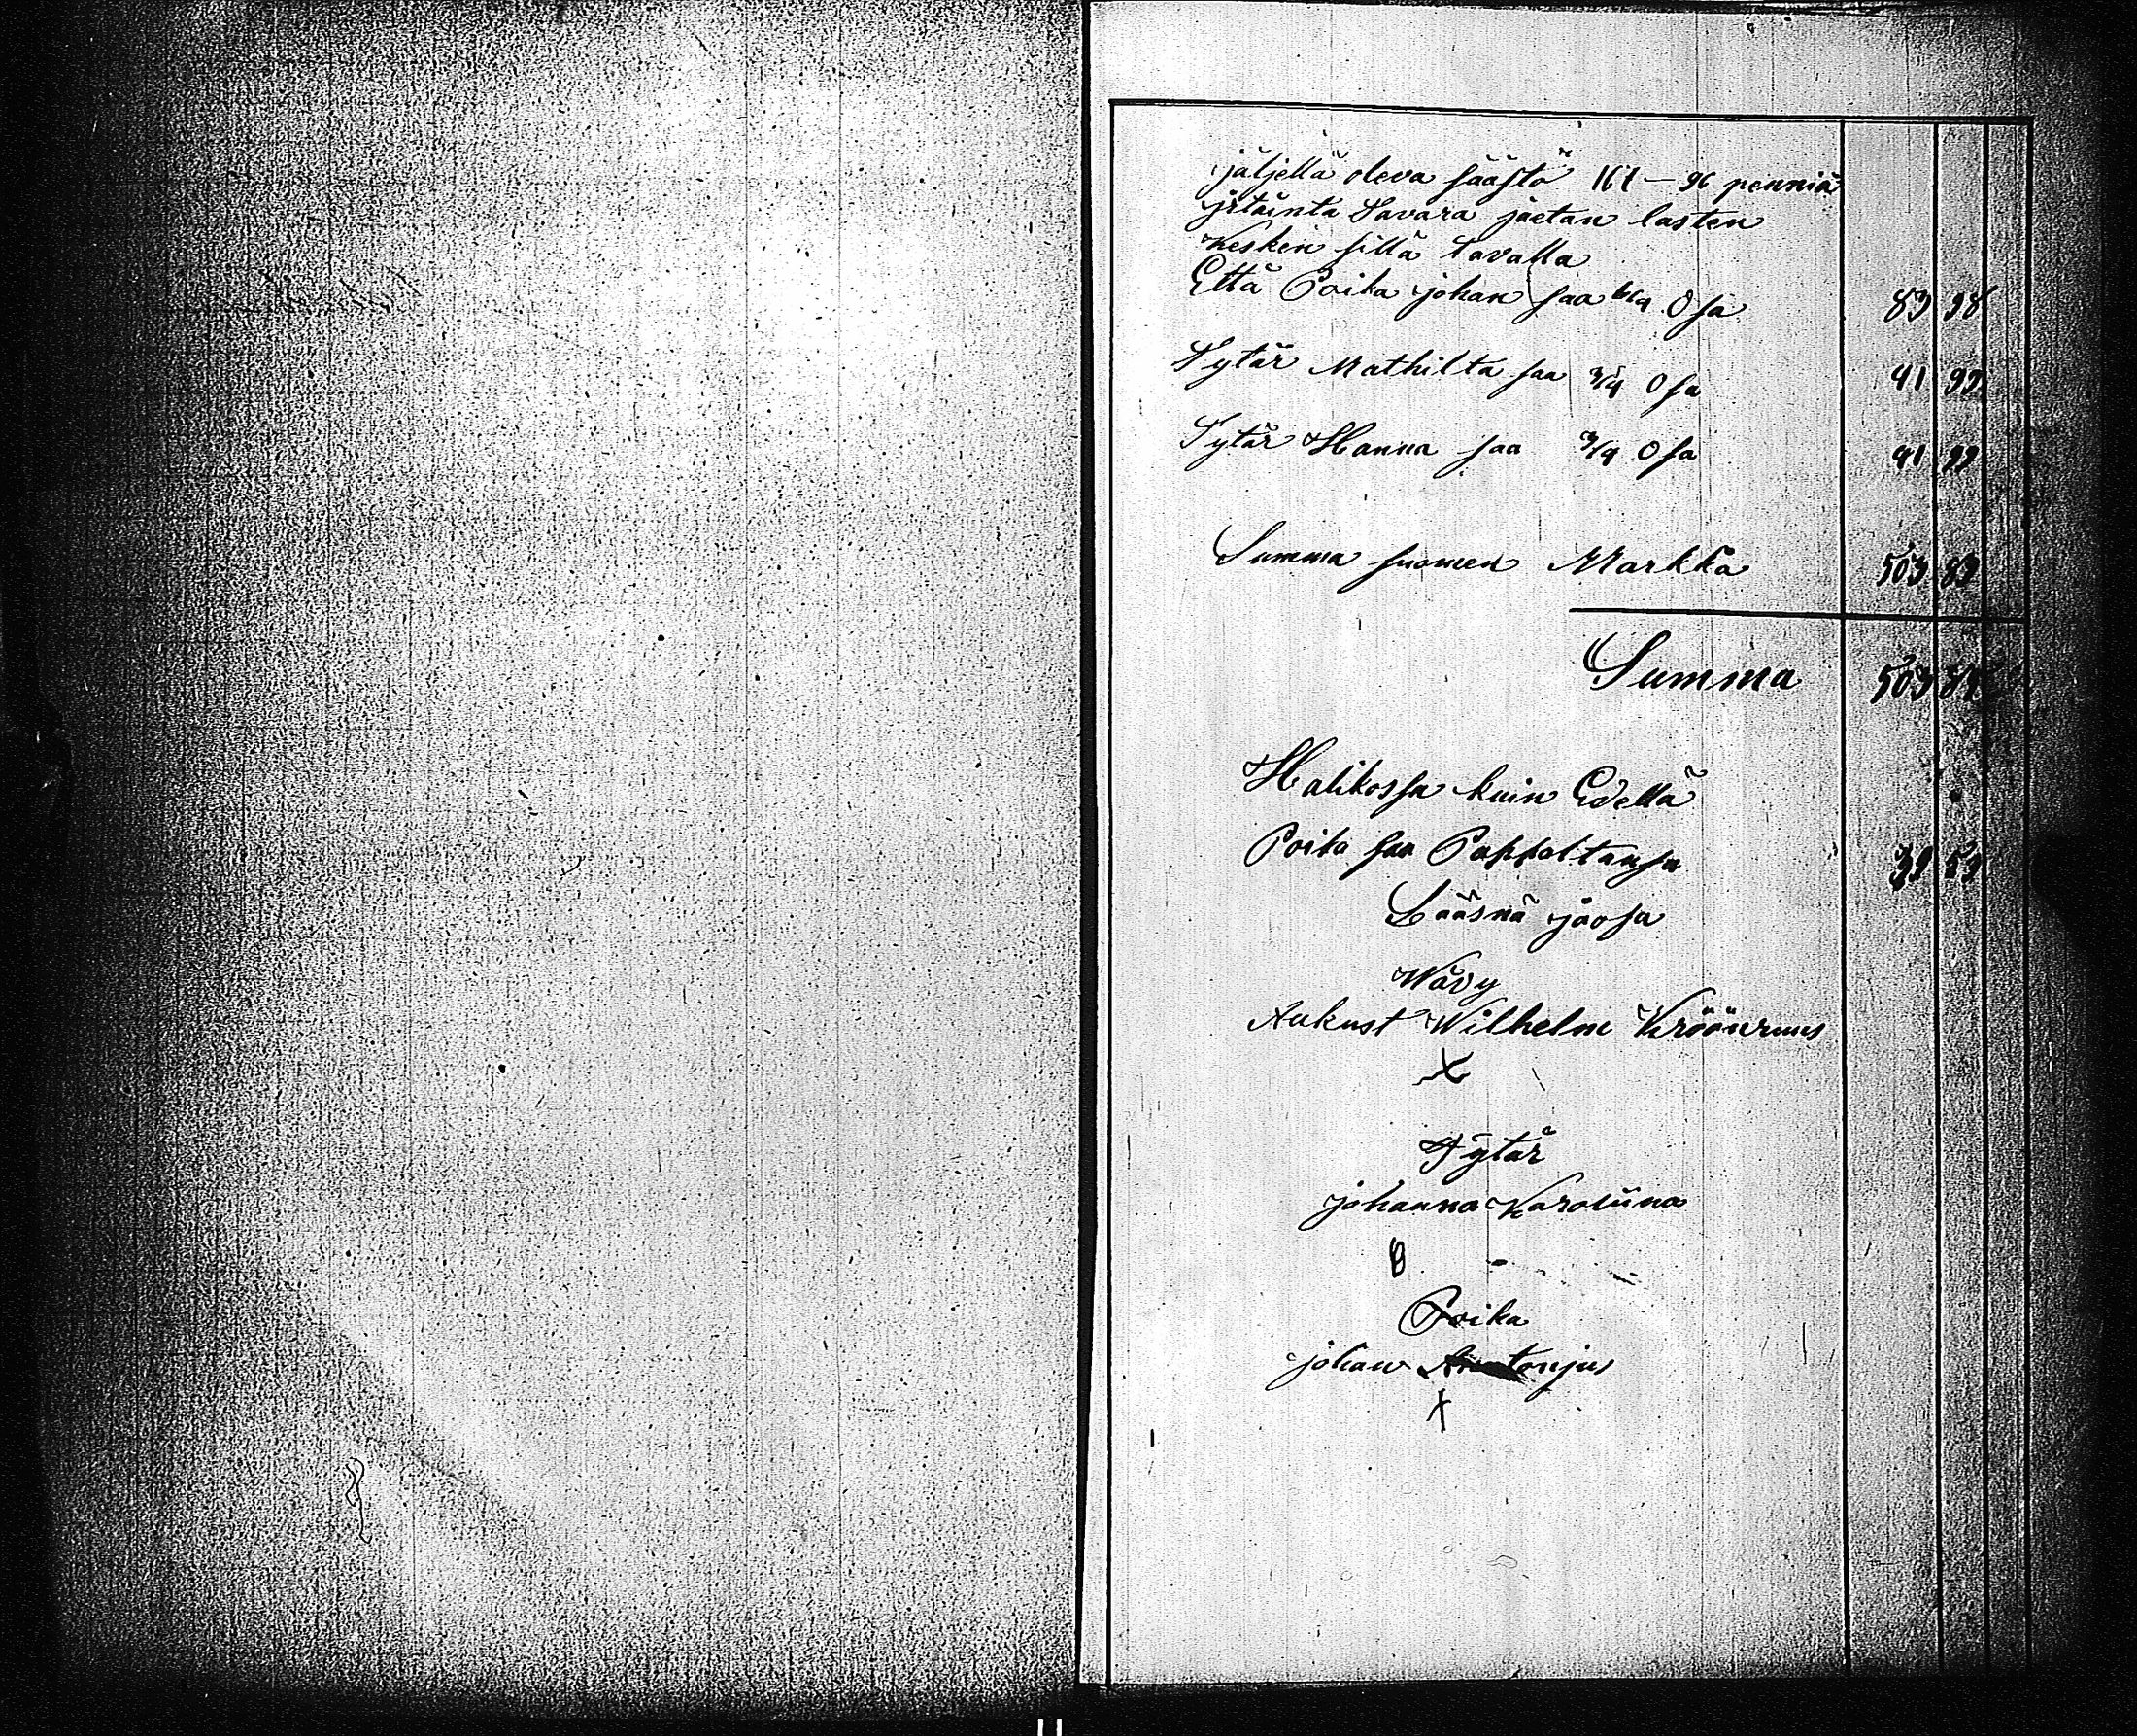 jäljellä oleva säästö 167-96 penniä
jrtäinta Tavara jaetan lasten
Kesken sillä tavalla
Että Poika johan saa Osa 83 98
Tytär Mathilta saa 3/4 Osa 41 99
Tytär Hanna saa 3/4 Osa 41 99
Summa suomen Markka 503 89
Summa 503 89
Halikossa kuin Edellä
Poika saa 39 59
Lääsnä jaosa
Wävy
Aukust Wilhelm
X
Tytär
johanna Karoliina
Poika
johan
X